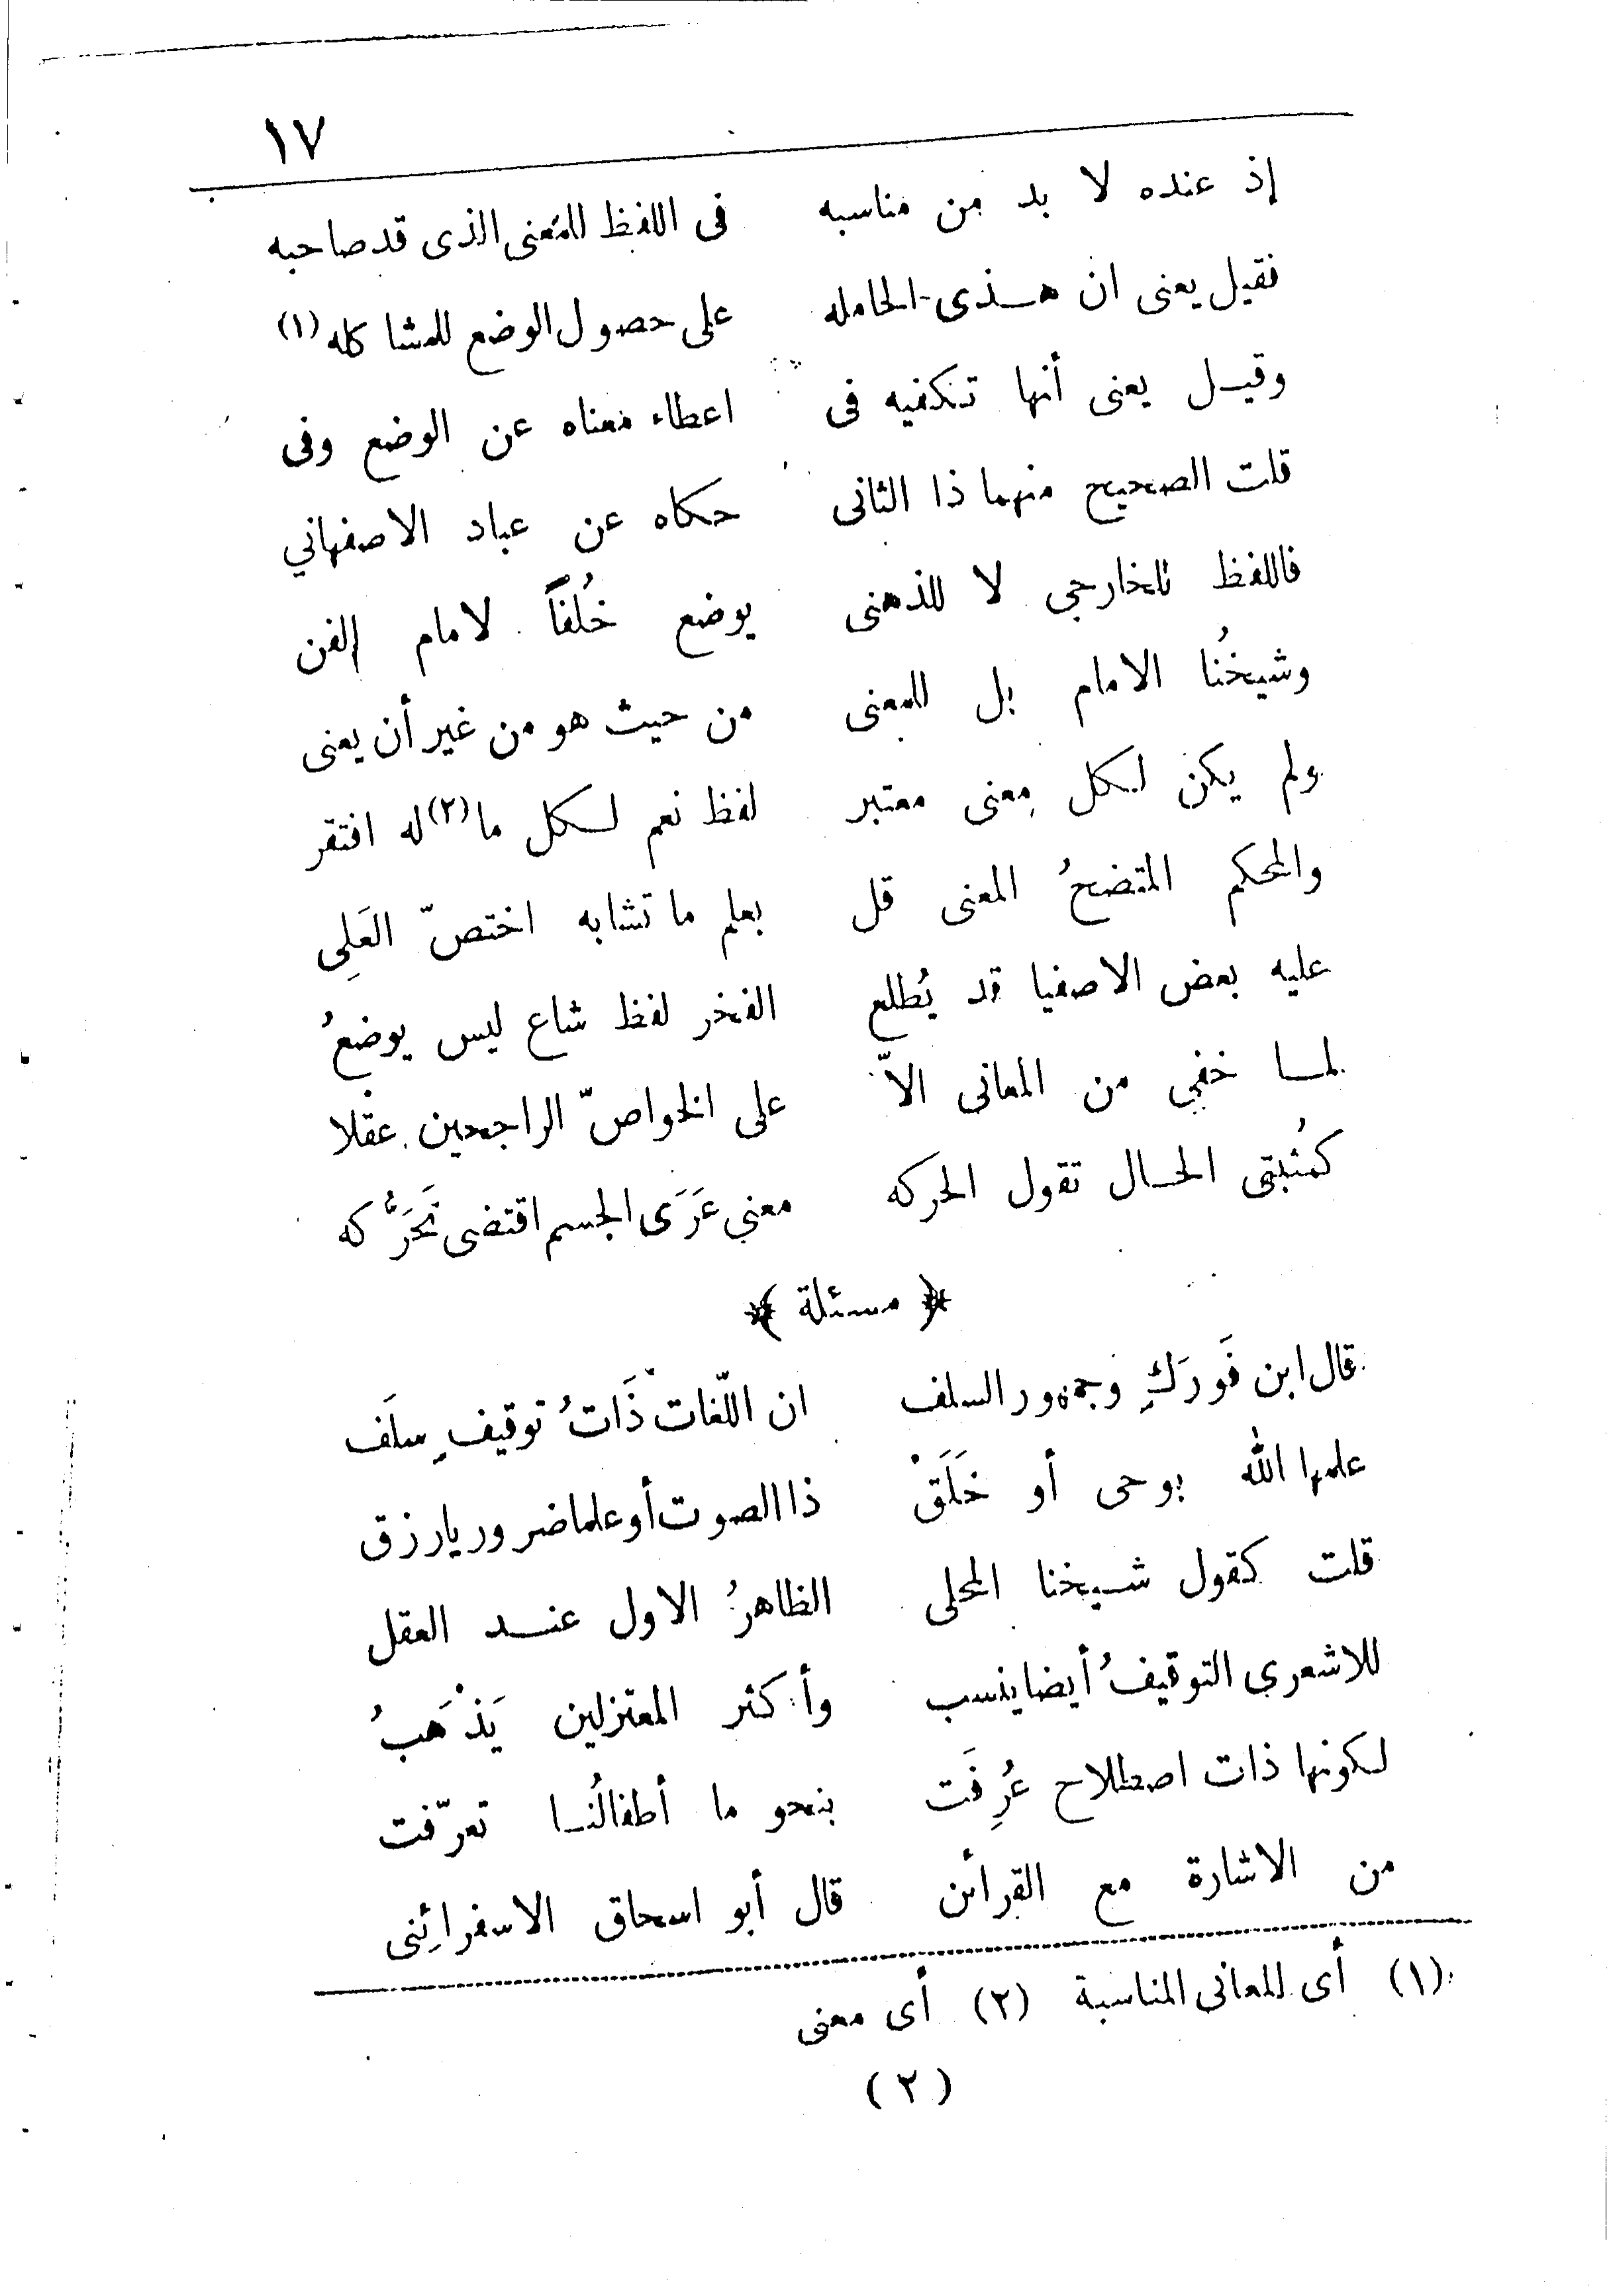 ١٧
إذ عنده لا بد من مناسبه في اللفظ للمعنى الذى قد صاحبه
فقيل يعنى ان هـذى الحامله على حصول الوضع للمشاكله (١)
وقيـل يعنى أنها تكفيه فى اعطاء معناه عن الوضع وفى
قلت الصحيح منهما ذا الثانى حكاه عن عباد الاصفهاني
فاللفظ للخارجي لا للذهنى يوضع خُلفاً لامام الفن
وشيخُنا الامام بل للمعنى من حيث هو من غير أن يعنى
ولم يكن لكل معنى معتبر لفظ نعم لكل ما (٢) له افتقر
والمحكم المتضحُ المعنى قل بعلم ما تشابه اختصّ العَلِى
عليه بعض الاصفيا قد يُطلع الفخر لفظ شاع ليس يوضعُ
لمـا خفي من المعانى الاّ على الخواصّ الراجحين عقلا
كمُثبتى الحـال تقول الحركه معني عَرَى الجسم اقتضى تَحَرُّكه
﴿ مسئلة ﴾
قال ابن فَورَكٍ وجمهور السلف ان اللّغات ذَاتُ توقيفٍ سلَف
علمها الله بوحى أو خَلَقْ ذا الصوت أو علما ضروريا رزق
قلت كقول شـيخنا المحلى الظاهرُ الاول عنـد العقل
للاشعرى التوقيفُ أيضا ينسب وأكثر المعتزلين يَذْهَبُ
لكونها ذات اصطلاح عُرِفَت بنحو ما أطفالُنـا تعرّفت
من الاشارة مع القرأئن قال أبو اسحاق الاسفرائِنى
(١) أى للمعانى المناسبة (٢) أى معنى
(٢)